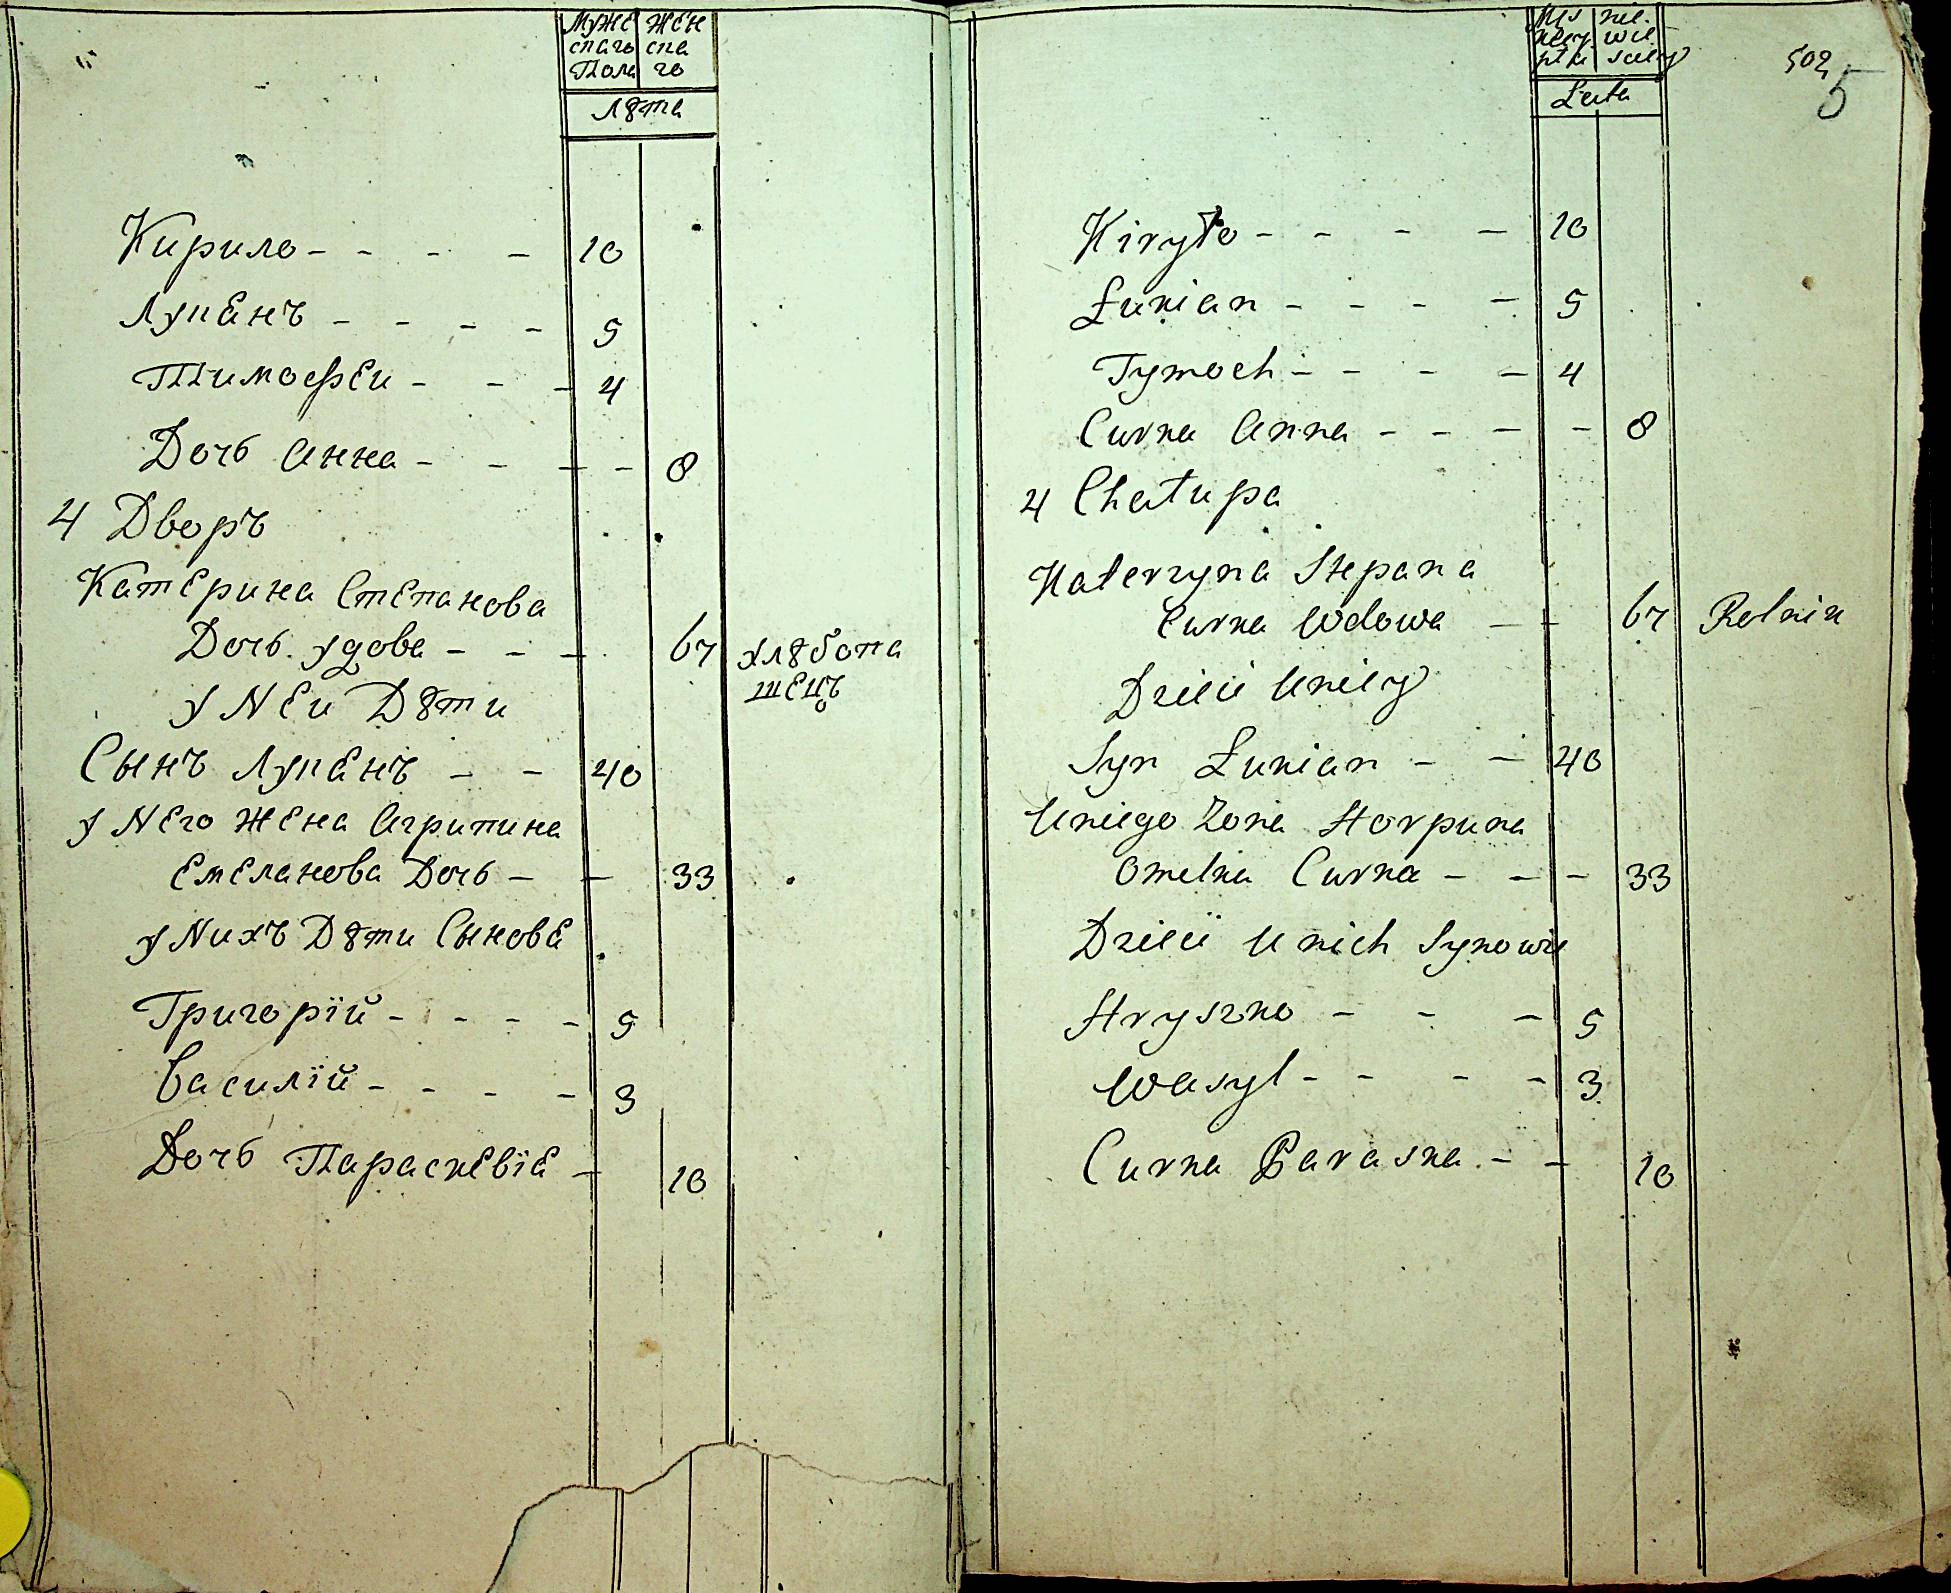 Муже
скаго
Пола
Жен
ска
го
Лѣта
Кирило - - - - 10
Лукѣанъ - - - - 5
Тимофеи - - - 4
Дочь Анна - - - - 8
4 Дворъ
Катерина Степанова
Дочь удова - - - 67 хлѣбопа
шецъ
у Неи Дѣти
Сынъ Лукѣанъ - - 40
у Него Жена Агрипина
Емеланова Дочь - - 33
у Нихъ Дѣти Сынове
Григорїй - - - - 5
Василїй - - - - 3
Дочь Параскевїе - 10
Lata
502
5
Kiryło - - - - 10
Łukian - - - - 5
Tymoch - - - - 4
Curka Anna - - - - 8
4 Chałupa
Katerzyna Stepana
Curka Wdowa - - 67 Rolnik
Dzieci Uniey
Syn Łukian - - 40
Uniego Żona Horpuna
Omelka Curka - - - 33
Dzieci Unich Synowie
Hryszko - - - 5
Wasyl - - - - 3
Curka Paraska - - 10